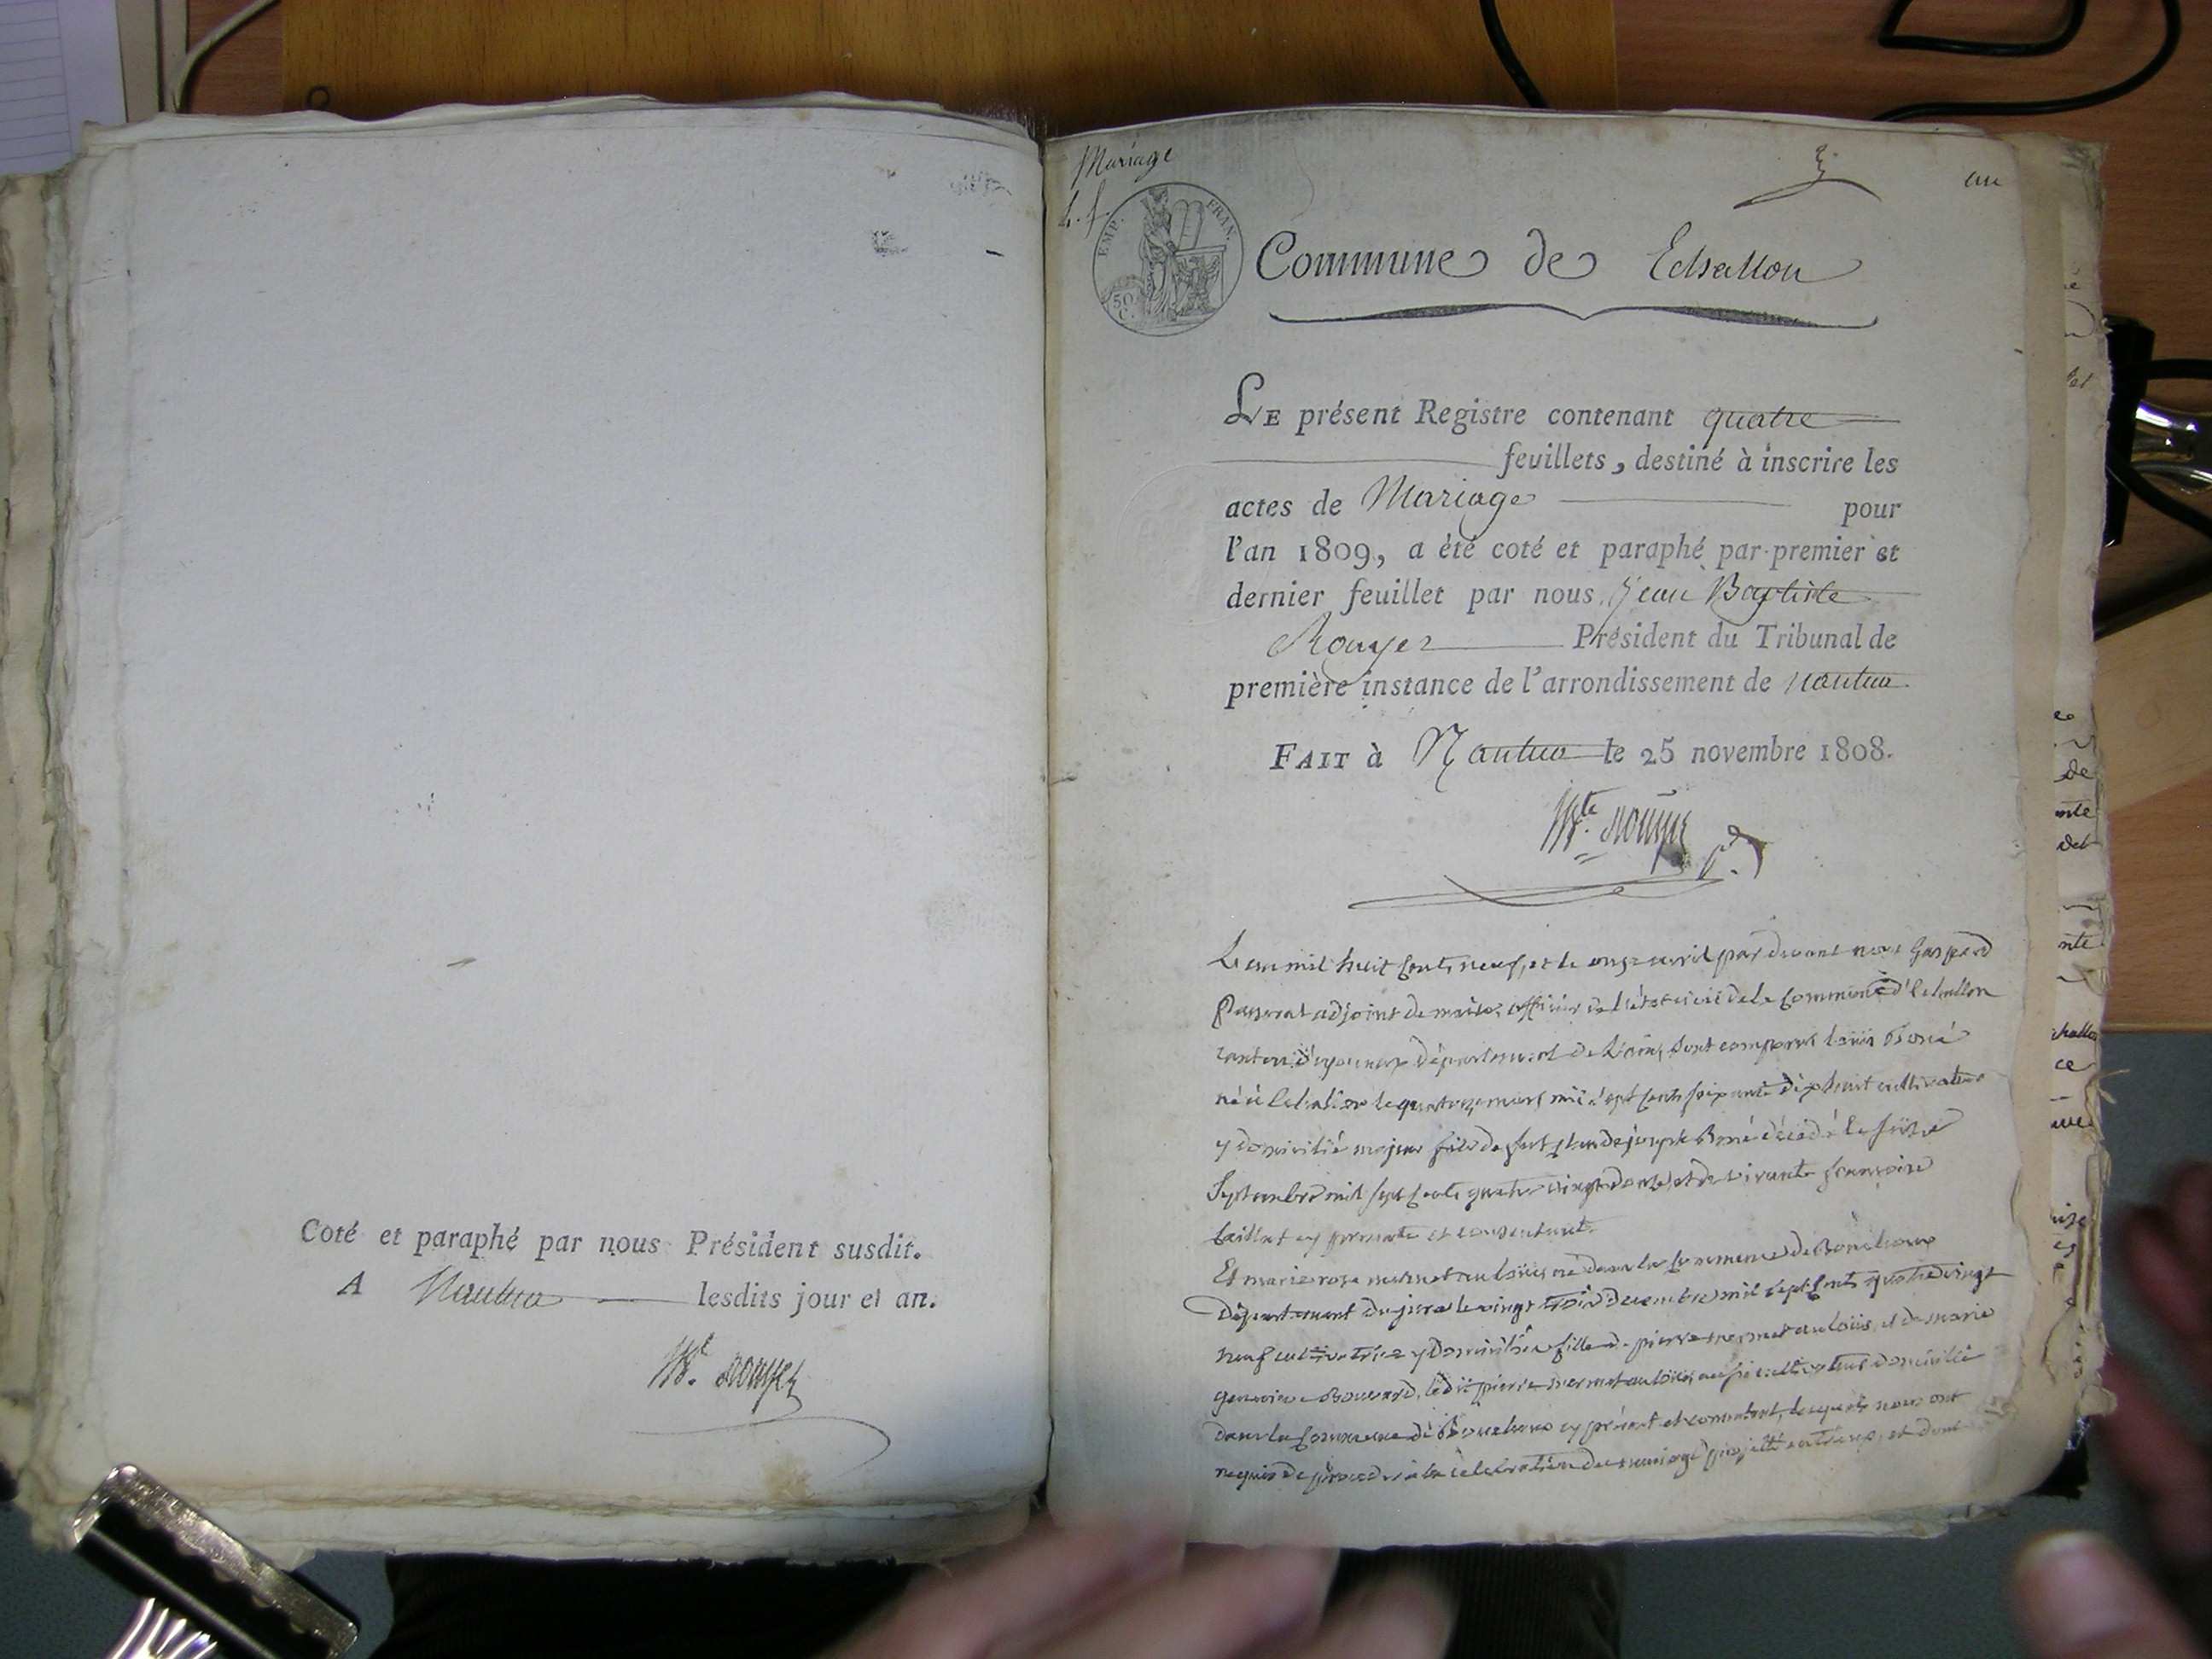 Coté et paraphé par nous Président susdit.
A Nantua lesdits jour et an.
Mte. Rouyer
Mariage
4. f.
EMP. FRAN.
50 C.
Commune de Echallon
LE présent Registre contenant quatre
feuillets, destiné à inscrire les
actes de Mariage pour
l'an 1809, a été coté et paraphé par premier et
dernier feuillet par nous Jean Baptiste
Rouyer Président du Tribunal de
première instance de l'arrondissement de nantua
FAIT à Nantua le 25 novembre 1808.
Mte. Rouyer
L'an mil huit cents neuf, et le onze avril par devant nous Gaspard
adjoint de maire, officier de l'état civil de la commune d'Echallon
canton d'oyonnax département de l'ain, sont comparus louis
né à Echallon le quatorze mars mil sept cents soixante dix huit cultivateur
y domicilié majeur fils de joseph décédé le
Septembre mil sept cents quatre vingt et de vivante françoise
cy présente et consentante.
Et marie rose mermet au louis né dans la commune de Bouchoux
Département du jura le vingt trois décembre mil sept cents quatre vingt
neuf cultivatrice y domiciliée fille de pierre mermet au louis, et de marie
ledit pierre mermet au louis, aussi cultivateur domicilié
dans la commune de Bouchoux cy présent et consentant, lesquels nous ont
requis de procéder à la célébration du mariage projetté entr'eux, et dont